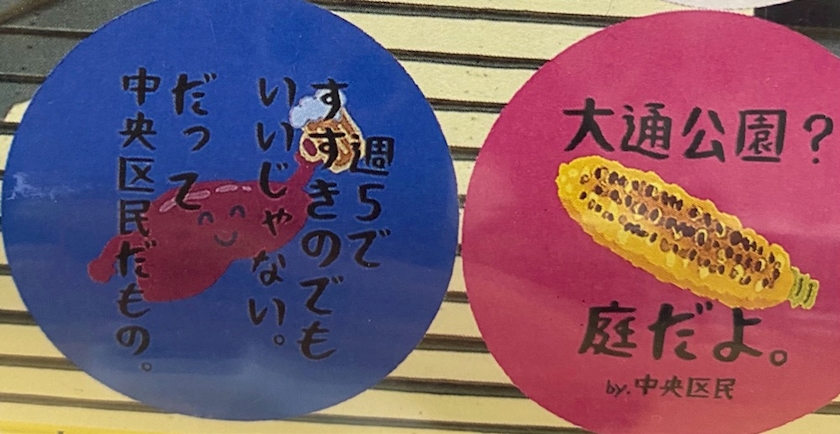 週5で
すすきのでも
いいじゃない。
だって
中央区民だもの。
大通公園?
庭だよ。
by.中央区民